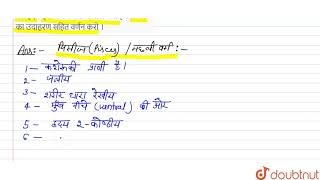 का उदाहरण सहित वर्णन करो ।
Ans:- पिसीज (Pisces) / मत्स्य वर्ग :-
1 – कशेरुकी प्राणी है।
2 - जलीय
3 - शरीर धारा रेखीय
4 - मुख नीचे (ventral) की ओर
5 - हृदय 2-कोष्ठीय
6 –
doubtnut